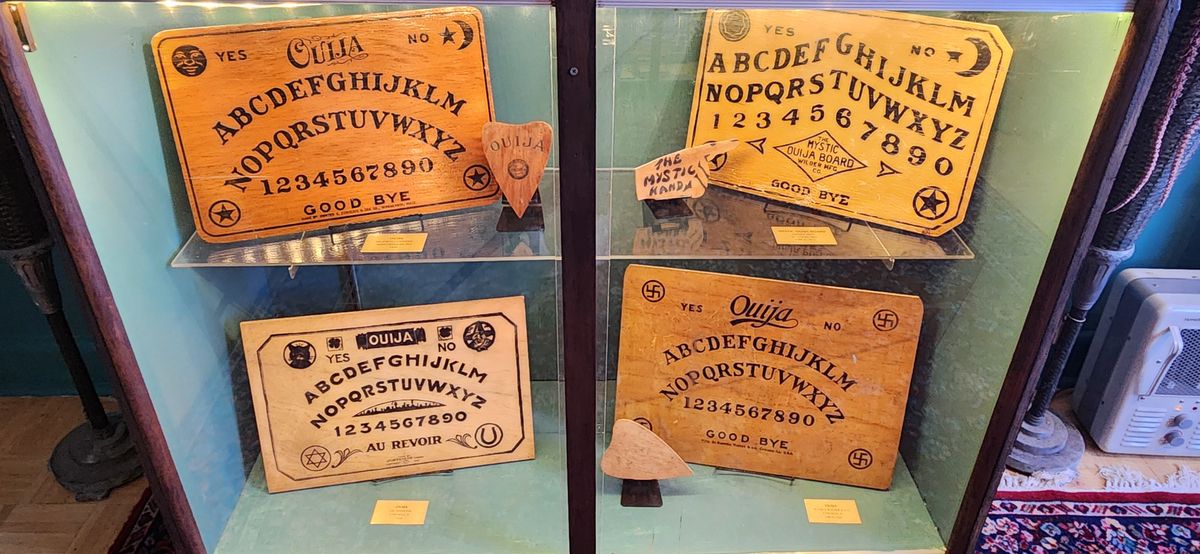 YES
OUIJA
NO
ABCDEFGHIJKLM
NOPQRSTUVWXYZ
1234567890
GOOD BYE
OUIJA
THE
MYSTIC
HANDA
YES
NO
ABCDEFGHIJKLM
NOPQRSTUVWXYZ
1234567890
MYSTIC
OUIJA BOARD
WILDER MFG
CO.
GOOD BYE
OUIJA
YES
NO
ABCDEFGHIJKLM
NOPQRSTUVWXYZ
1234567890
AU REVOIR
YES
Ouija
NO
ABCDEFGHIJKLM
NOPQRSTUVWXYZ
1234567890
GOOD BYE